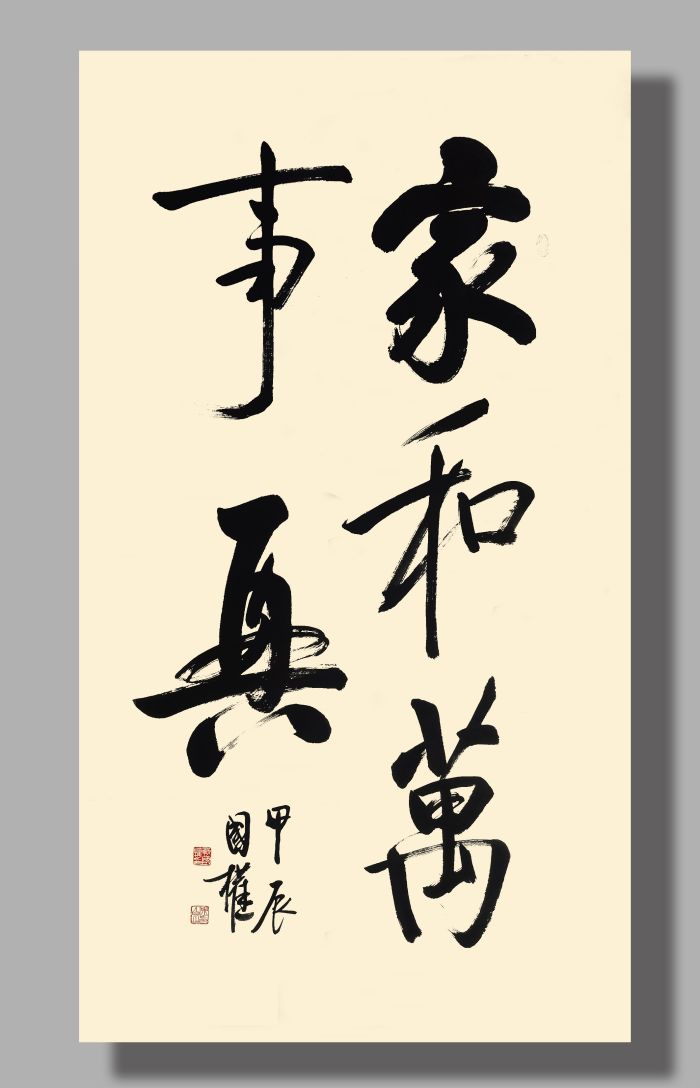 家和萬
事興
甲辰
國權